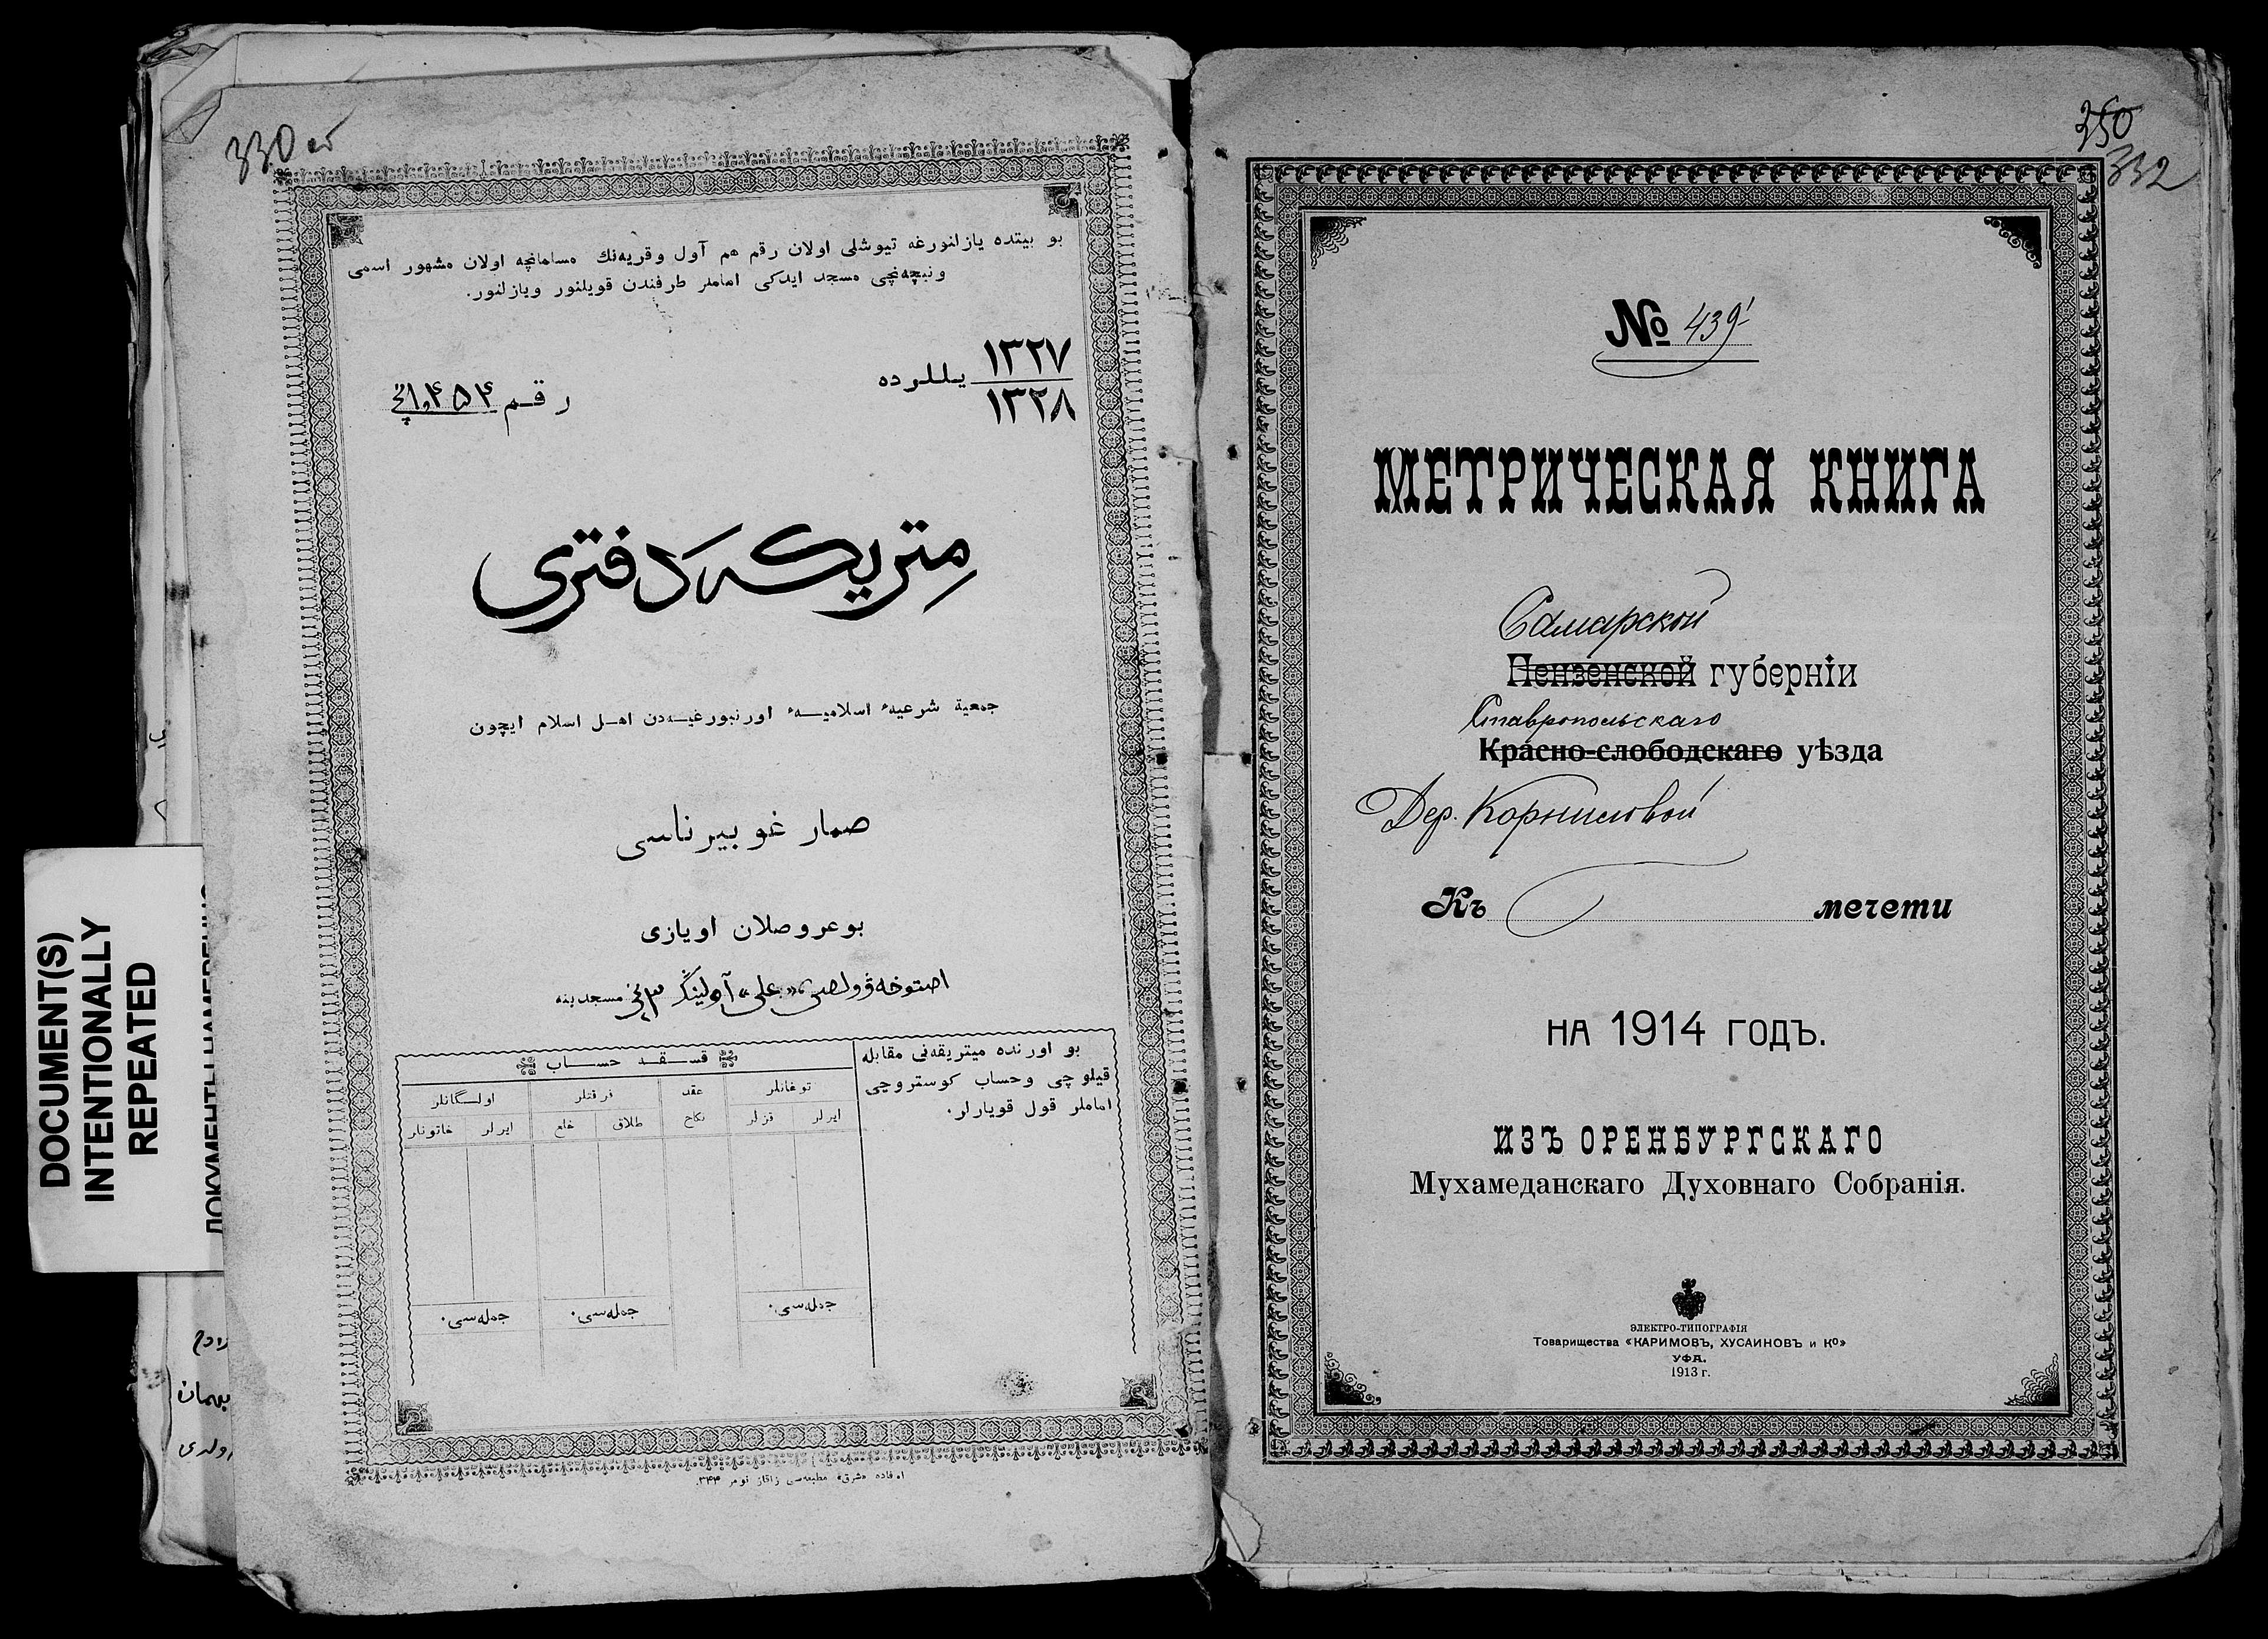 330 об
بو بيتده يازلنورغه تيوشلى اولان رقم هم آول وقريه‌نك مسلمانچه اولان مشهور اسمى
ونيچه‌نچى مسجد ايدكى اماملر طرفندن قويلنور ويازلنور.
١٣٢٧
١٣٢٨
يللرده
رقم
متريكه دفترى
جمعية شرعيهٔ اسلاميهٔ اورنبورغيه‌دن اهل اسلام ايچون
صمار غوبيرناسى
بوعروصلان اويازى
مسجدينه
بو اورنده ميتريقه‌نى مقابله
قيلوچى وحساب كوستروچى
اماملر قول قويارلر.
قسقه حساب
توغانلر
عقد
فرقتلر
اولگانلر
ايرلر
قزلر
نكاح
طلاق
خلع
ايرلر
خاتونلر
جمله‌سى.
جمله‌سى.
جمله‌سى.
اوفاده «شرق» مطبعه‌سى زاقاز نومر ٣٤٤.
DOCUMENT(S)
INTENTIONALLY
REPEATED
350
332
№ 439
МЕТРИЧЕСКАЯ КНИГА
Самарской
Пензенской губерніи
Ставропольскаго
Красно-слободскаго уѣзда
Дер. Корниловой
Къ мечети
НА 1914 ГОДЪ.
ИЗЪ ОРЕНБУРГСКАГО
Мухамеданскаго Духовнаго Собранія.
ЭЛЕКТРО-ТИПОГРАФІЯ
Товарищества «КАРИМОВЪ, ХУСАИНОВЪ и Кº»
УФА.
1913 г.